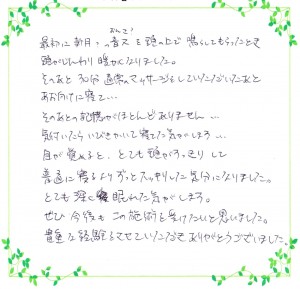 最初に新月の音叉を頭の上で鳴らしてもらったとき
頭がじんわり暖かくなりました。
そのあと30分通常のマッサージをしていただいたあと
あお向けに寝て…
そのあとの記憶がほとんどありません…
気付いたらいびきかいて寝てた気がします…
目が覚めると、とても頭がすっきりして
普通に寝るよりずっとスッキリした気分になりました。
とても深く眠れた気がします。
ぜひ今後もこの施術を受けたいと思いました。
貴重な経験をさせていただきありがとうございました。